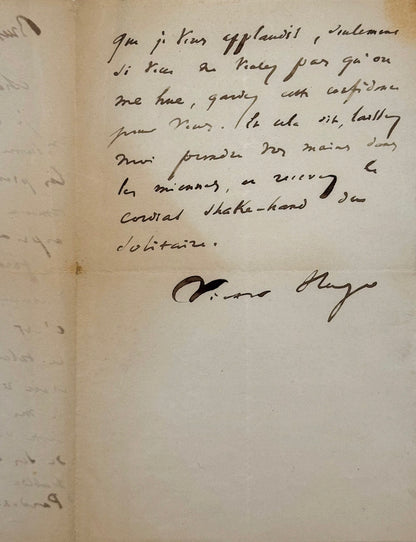 que je vous applaudis, seulement
si vous ne voulez pas qu'on
me hue, gardez cette confidence
pour vous. Et cela dit, laissez
moi prendre vos mains dans
les miennes, et recevez le
cordial shake-hand du
solitaire.
Victor Hugo